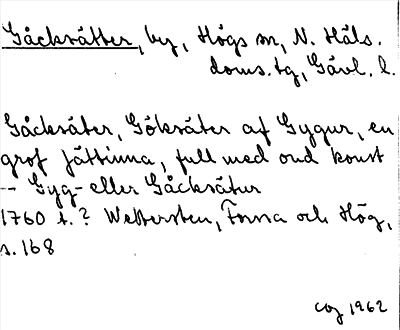 Gåcksätter, by, Högs sn, N. Häls.
doms.tg, Gävl. l.
Gåcksäter, Göksäter af Gygur, en
grof jättinna, full med ond konst
-- Gyg- eller Gåcksätur
1760 t.? Wettersten, Forssa och Hög,
s. 168
1962